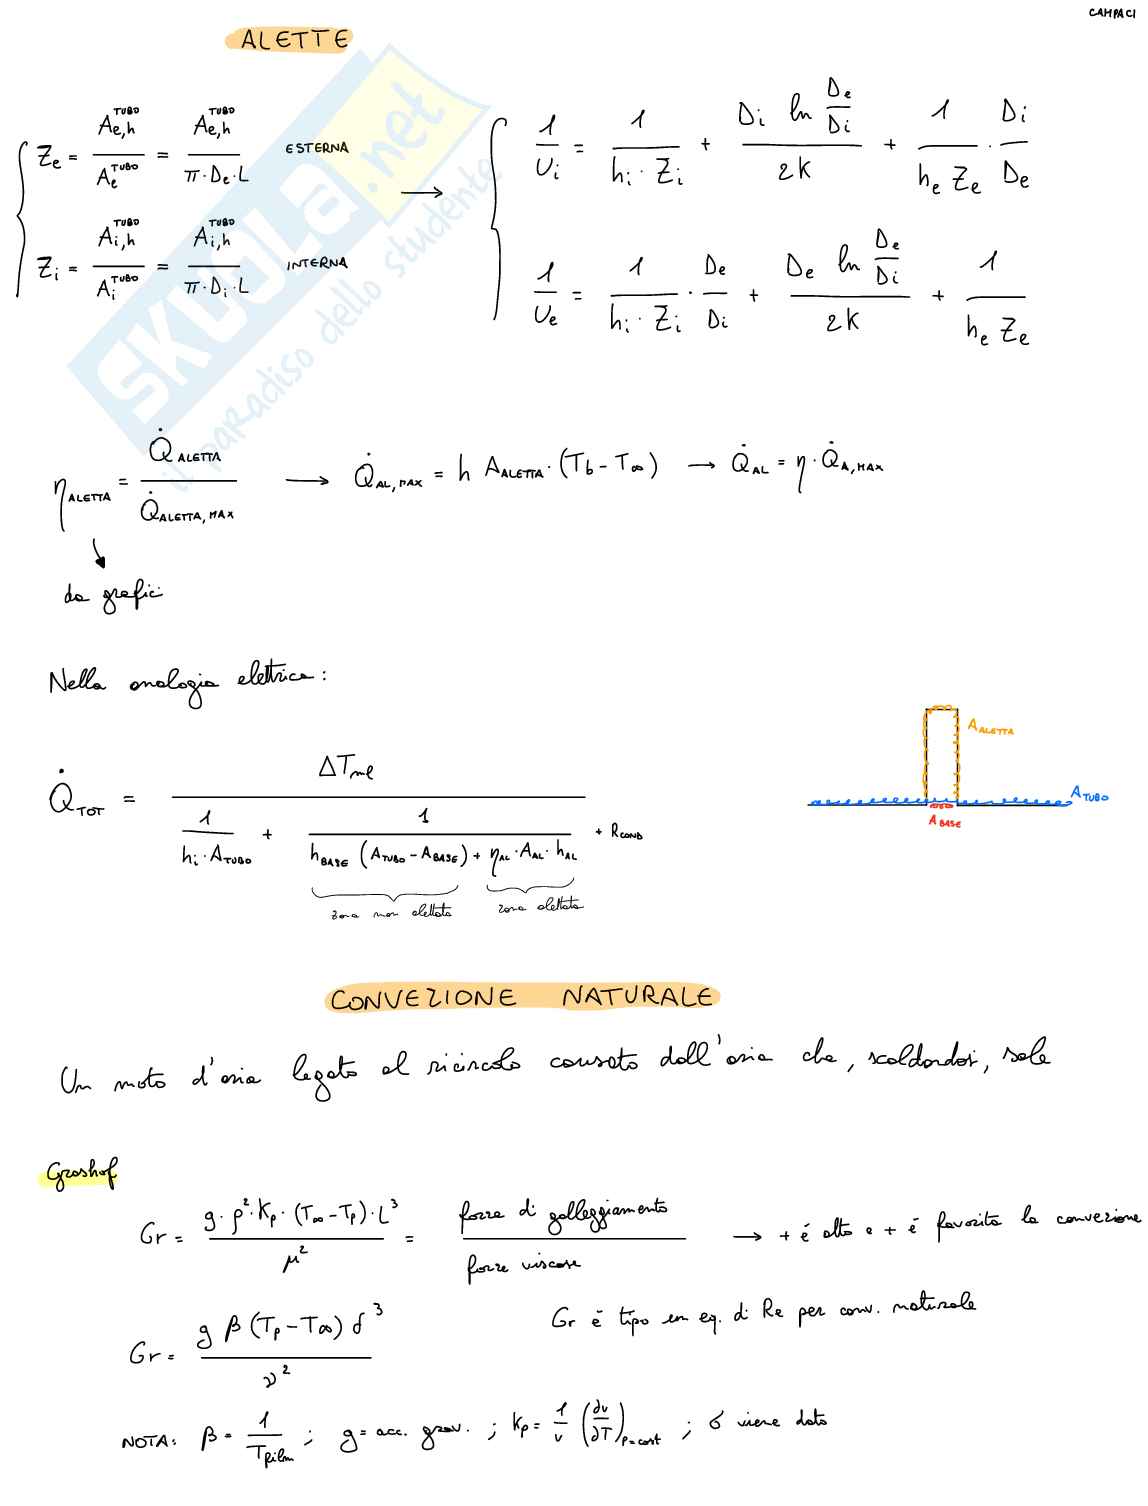 CAMPACI
ALETTE
Z_e = A_{e,h}^{TUBO} / A_e^{TUBO} = A_{e,h}^{TUBO} / (π·D_e·L) ESTERNA
Z_i = A_{i,h}^{TUBO} / A_i^{TUBO} = A_{i,h}^{TUBO} / (π·D_i·L) INTERNA
→
1/U_i = 1/(h_i·Z_i) + (D_i ln D_e/D_i)/(2K) + 1/(h_e Z_e) · D_i/D_e
1/U_e = 1/(h_i·Z_i) · D_e/D_i + (D_e ln D_e/D_i)/(2K) + 1/(h_e Z_e)
SKUOLA.net
il paradiso dello studente
η_{ALETTA} = Q̇_{ALETTA} / Q̇_{ALETTA, MAX} → Q̇_{AL, MAX} = h A_{ALETTA}·(T_b - T_∞) → Q̇_{AL} = η·Q̇_{A, MAX}
da grafici
Nella analogia elettrica:
Q̇_{TOT} = ΔT_{ml} / (1/(h_i·A_{TUBO}) + 1/(h_{BASE} (A_{TUBO} - A_{BASE}) + η_{AL}·A_{AL}·h_{AL}) + R_{COND})
zona non alettata
zona alettata
A_{ALETTA}
A_{TUBO}
A_{BASE}
CONVEZIONE NATURALE
Un moto d'aria legato al ricircolo causato dall'aria che, scaldandosi, sale
Grashof
Gr = (g·ρ²·K_p·(T_∞ - T_p)·L³) / μ² = forze di galleggiamento / forze viscose → + é alto e + é favorita la convezione
Gr = (g β (T_p - T_∞) δ³) / ν²
Gr è tipo un eq. di Re per conv. naturale
NOTA: β = 1/T_{film} ; g = acc. grav. ; K_p = 1/v (∂v/∂T)_{p=cost} ; δ viene dato